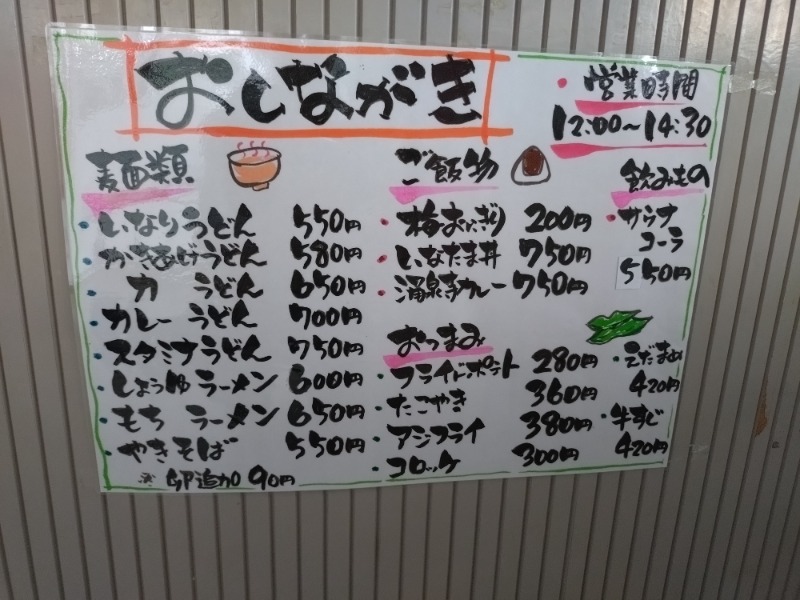 おしながき
・営業時間
12:00〜14:30
麺類
・いなりうどん 550円
・かきあげうどん 580円
・力 うどん 650円
・カレーうどん 700円
・スタミナうどん 750円
・しょうゆラーメン 600円
・もち ラーメン 650円
・やきそば 550円
※ 卵追加 90円
ご飯物
・梅おにぎり 200円
・いなたま丼 750円
・温泉寺カレー 750円
おつまみ
・フライドポテト 280円
・たこやき 360円
・アジフライ 380円
・コロッケ 300円
・えだまめ
420円
・牛すじ
420円
飲みもの
・サウナ
コーラ
550円